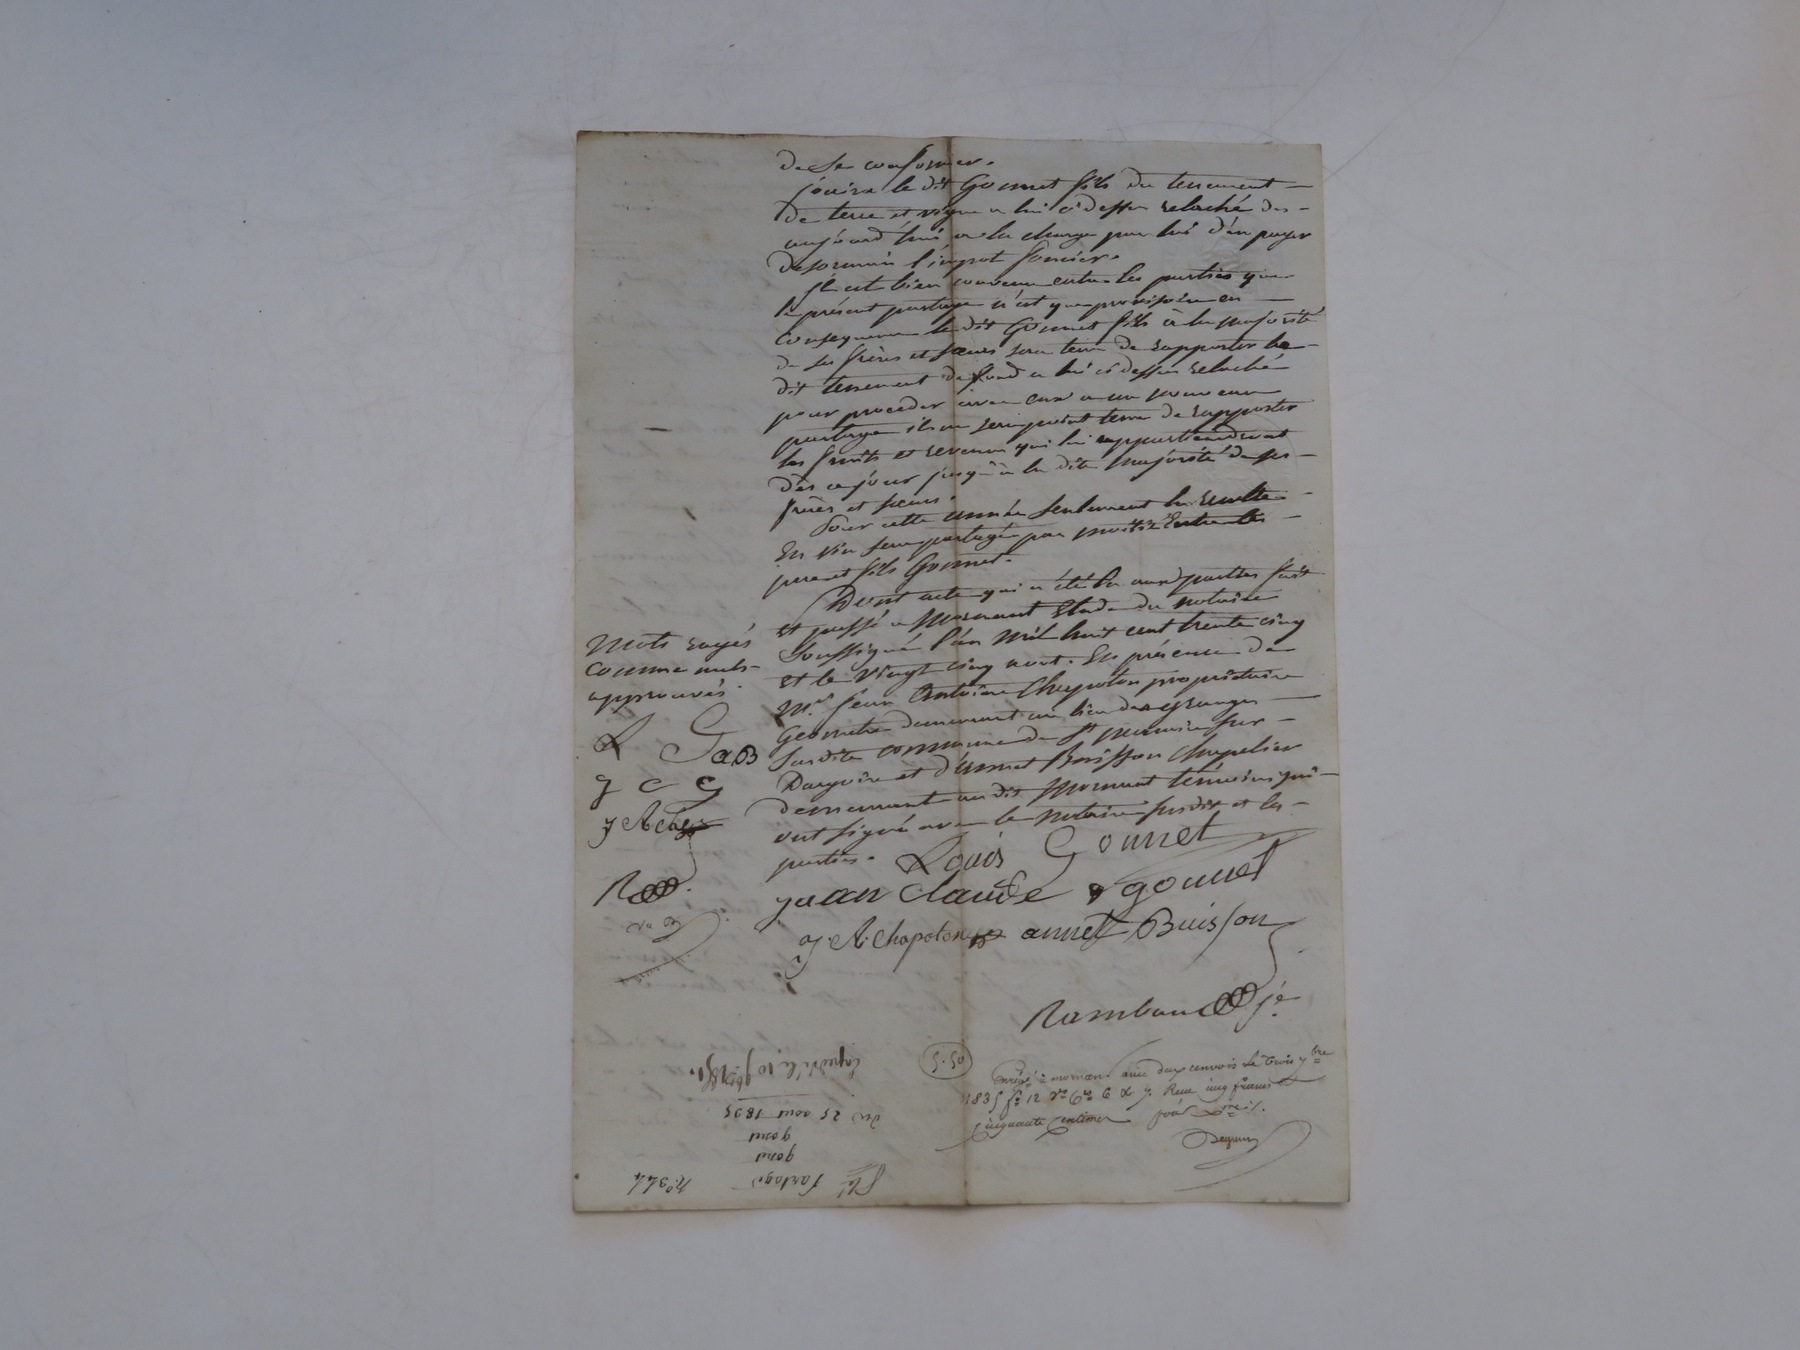 de se conformer.
jouira le dit Gonnet fils du tenement
de terre et vigne a lui ci dessus relaché des
aujourd'hui a la charge par lui d'en payer
desormais l'impot foncier.
Il est bien convenu entre les parties que
le présent partage n'est que provisoire en
consequence le dit Gonnet fils à la majorité
de ses frères et sœurs sera tenu de rapporter le
dit tenement de fond a lui ci dessus relaché
pour proceder avec eux a un nouveau
partage il ne sera point tenu de rapporter
les fruits et revenus qui lui appartiendront
dès ce jour jusqu'à la dite majorité de ses
frères et sœurs.
Pour cette année seulement la recolte
En vin sera partagée par moitié Entre les
pere et fils Gonnet.
Dont acte qui a été lu aux parties fait
et passé a Mornant Etude du notaire
soussigné l'an mil huit cent trente cinq
et le vingt cinq aout. En présence de
Mr. Jean Antoine Chapoton propriétaire
Geometre demeurant au lieu des granges
susdite commune de St
Dargoire et d'annet Boisson Chapelier
demeurant au dit Mornant témoins qui
ont signé avec le notaire susdit et les
parties.
Mots rayés
comme nuls
approuvés.
L G a.B
J C G
J A Chap
R
Louis Gonnet
jean claude gonnet
J. A. Chapoton annet Buisson
Rambaud
5.50
Enregé à mornant avec deux renvois le trois 7bre
1835 fo 12 Vo Ces 6 & 7. Recu cinq francs
Cinquante centimes
Expédié le 10
du 25 aout 1835
gond
gond
Partage
No 344